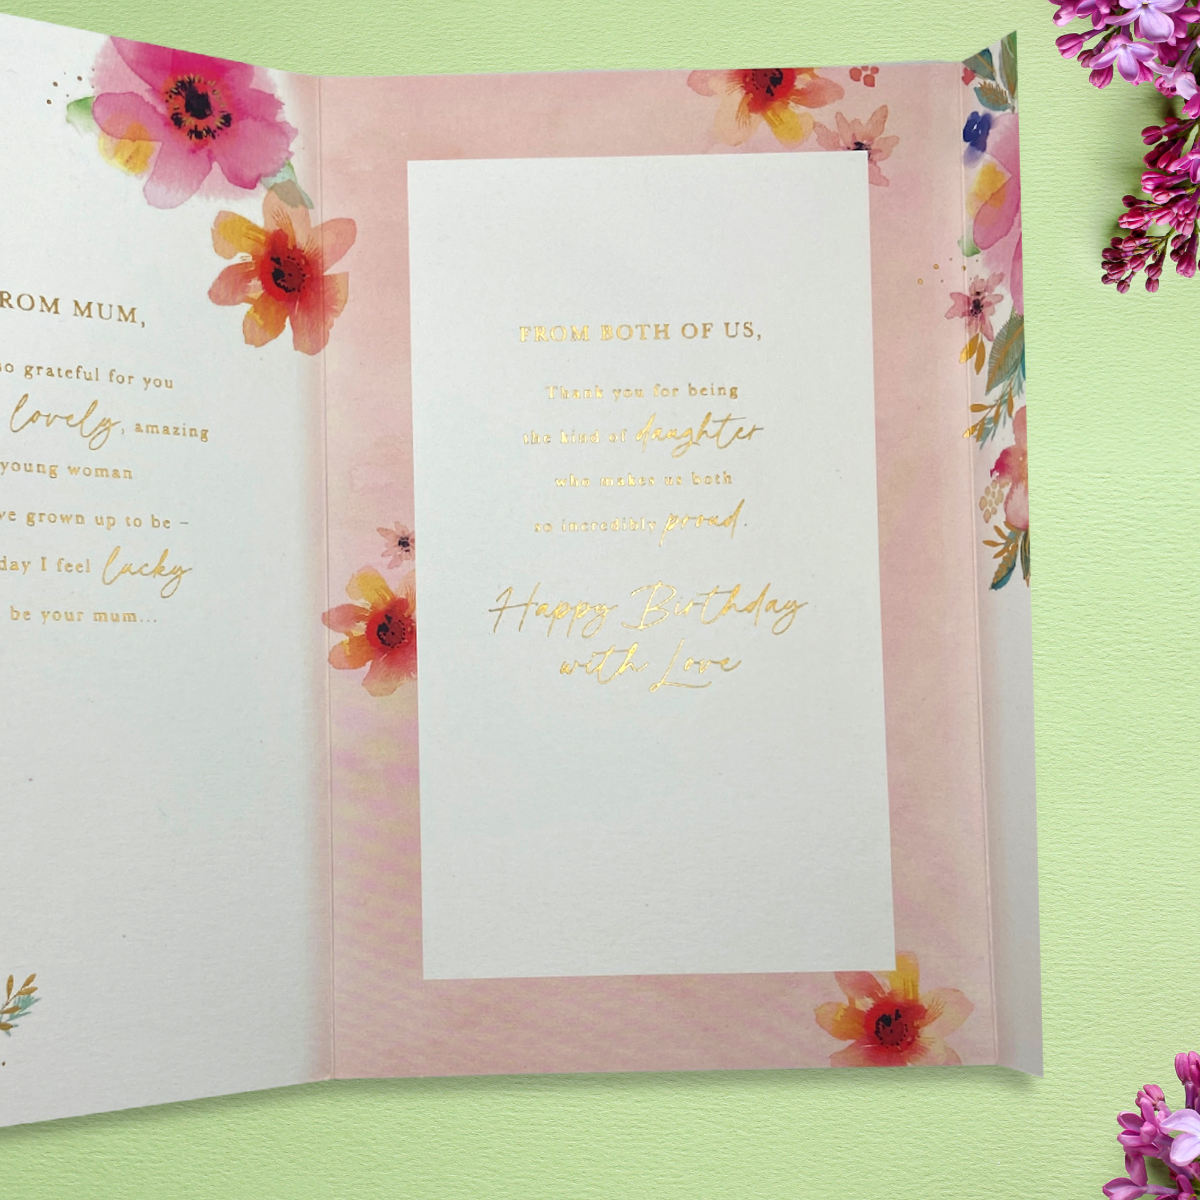 ROM MUM,
so grateful for you
lovely, amazing
young woman
ve grown up to be –
day I feel lucky
be your mum...
FROM BOTH OF US,
Thank you for being
the kind of daughter
who makes us both
so incredibly proud.
Happy Birthday
with Love